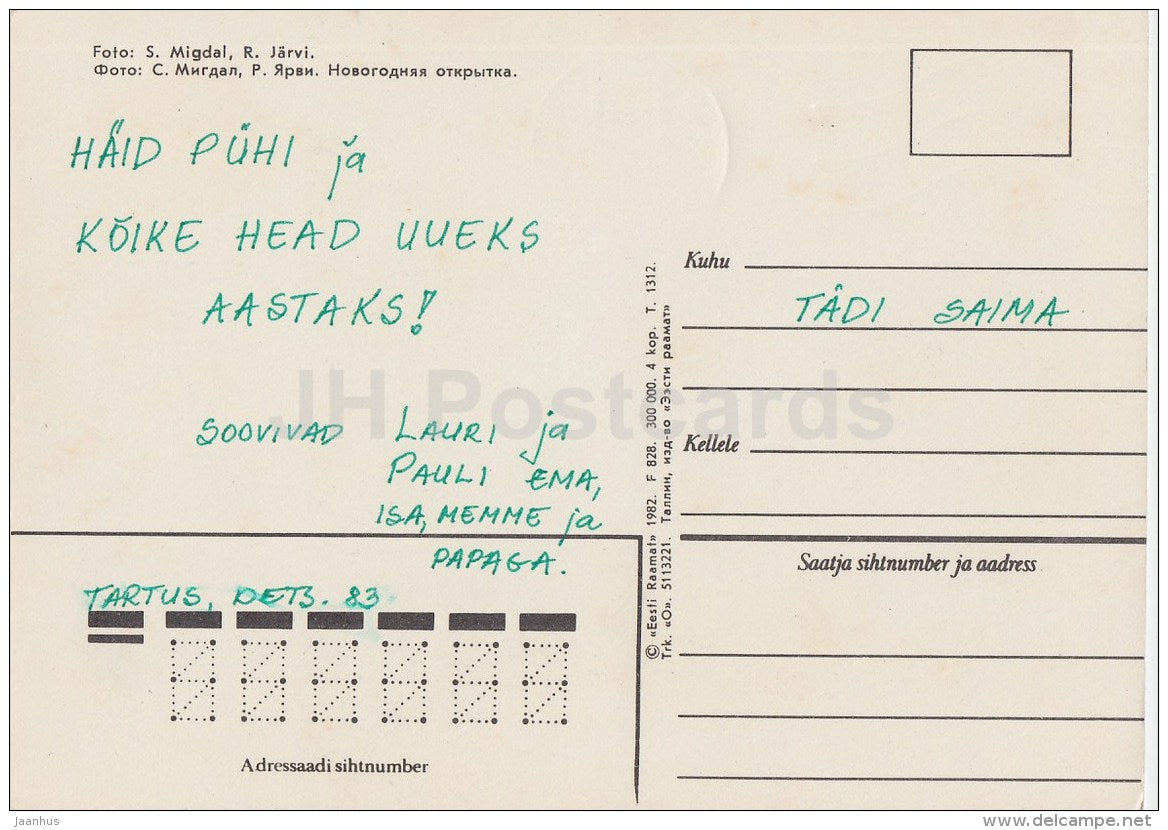 Foto: S. Migdal, R. Järvi.
Фото: С. Мигдал, Р. Ярви. Новогодняя открытка.
HÄID PÜHI ja
KÕIKE HEAD UUEKS
AASTAKS!
SOOVIVAD LAURI ja
PAULI EMA,
ISA, MEMME ja
PAPAGA.
TARTUS, DETS. 83
Adressaadi sihtnumber
© «Eesti Raamat» 1982. F 828. 300 000. 4 kop. T. 1312.
Trk. «O». 5113221. Таллин, изд-во «Ээсти раамат»
Kuhu
TÄDI SAIMA
Kellele
Saatja sihtnumber ja aadress
JH Postcards
Jaanhus
www.delcampe.net